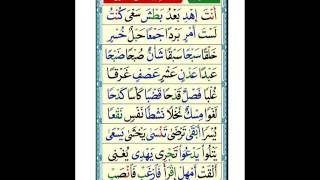 اَنْتَ اِهْدِ بَعْدُ بَطْشَ سَعْىَ كُنْتُ
لَسْتَ اَمْرِ بَرْدًا جَمْعًا حَبْلٌ خُسْرٍ
خَلْقًا سَبْحًا سَبْقًا شَأْنٌ صُبْحًا ضَبْحًا
عَبْدًا عَدْنٍ عَشْرٍ عَصْفٍ غَرْقًا
غُلْبًا فَصْلٌ قَدْحًا قَضْبًا كَأْسًا كَدْحًا
لَغْوًا مِسْكٌ نَخْلًا نَشْطًا نَفْسٍ نَقْعًا
يُسْرًا اَلْقٰى تَرْضٰى تَنْسٰى يَخْشٰى يَسْعٰى
يَتْلُوْا يَدْعُوْا تَجْرِىْ يَهْدِىْ يُغْنِىْ
اَلْقَتْ اَمْهِلْ اِقْرَأْ فَارْغَبْ فَانْصَبْ